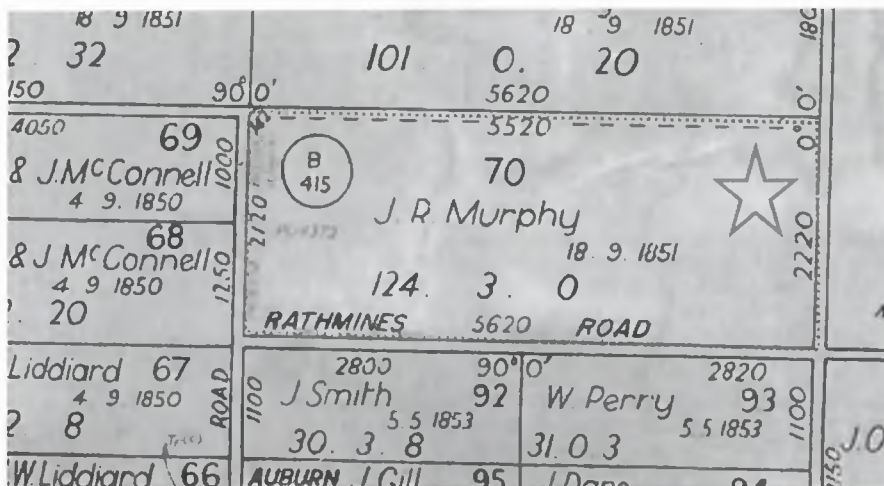 18 9 1851
32
150
90° 0'
18 9 1851
101 0. 20
5620
180
0'
4050
69
1000
& J. McConnell
4 9. 1850
68
& J McConnell
4 9 1850
1250
20
5520
0°
B
415
70
J. R. Murphy
18. 9. 1851
124. 3. 0
2120
2220
RATHMINES 5620 ROAD
Liddiard 67
4 9. 1850
8
ROAD
W. Liddiard 66
2800
90° 0'
1100
J Smith 92
5. 5 1853
30. 3. 8
2820
W. Perry 93
5. 5 1853
31. 0 3
1100
AUBURN J Gill 95
J. O